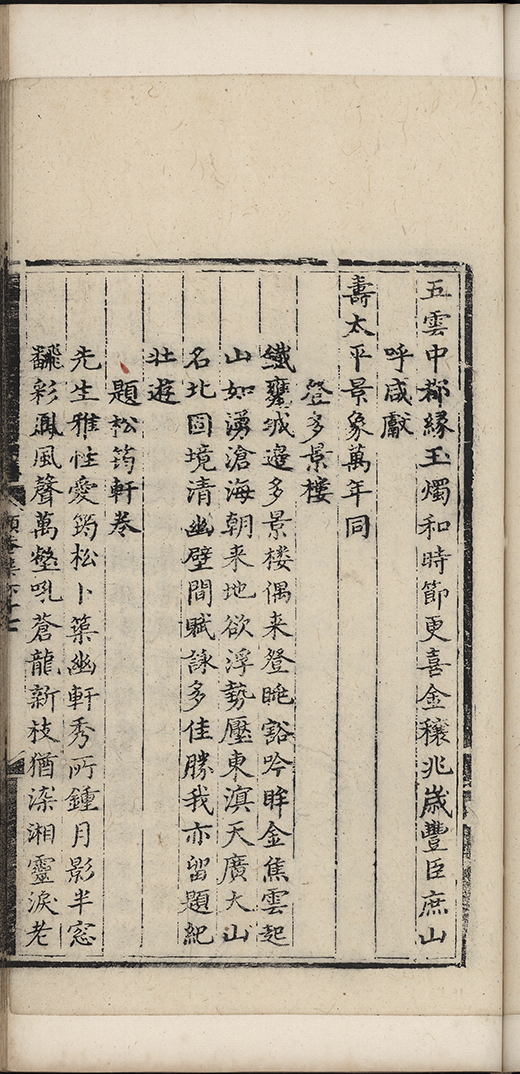 五雲中都緣玉燭和時節更喜金穰兆嵗豐臣庶山
呼咸獻
壽太平景象萬年同
登多景樓
鐵甕城邉多景楼偶来登眺豁吟眸金焦雲起
山如湧滄海朝来地欲浮勢壓東溟天廣大山
名北固境清幽壁間賦詠多佳勝我亦留題紀
壯遊
題松筠軒卷
先生雅性愛筠松卜築幽軒秀所鍾月影半窓
翻彩鳳風聲萬壑吼蒼龍新枝猶染湘靈淚老